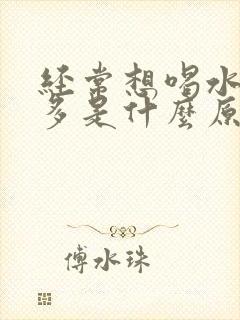 经常想喝水
多是什麼原
傅水珠